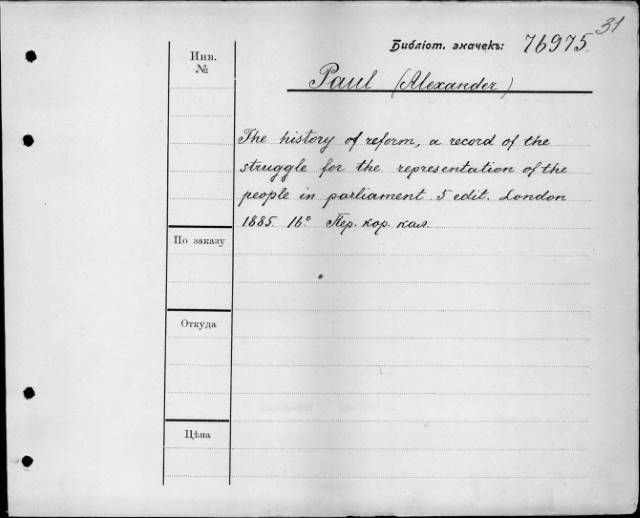 31
Библіот. значекъ: 76975.
Инв.
№
Paul (Alexander)
The history of reform, a record of the
struggle for the representation of the
people in parliament. 5 edit. London
1885. 16° Пер. кор. кал.
По заказу
Откуда
Цѣна